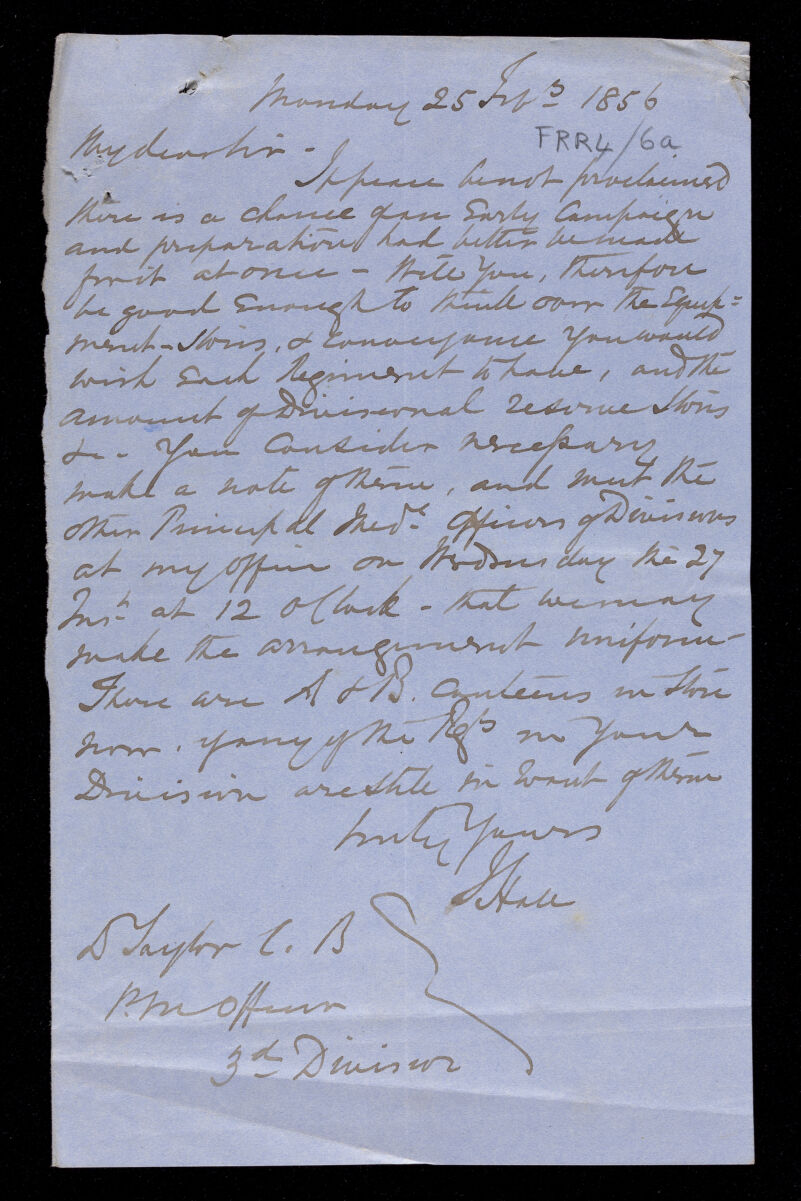 Monday 25 Feby 1856
FRR4/6a
My dear Sir -
If peace be not proclaimed
there is a chance of an Early Campaign
and preparation had better be made
for it at once - Will You, therefore
be good Enough to think over the Equip=
ment - Stores, & Conveyance You would
wish Each Regiment to have, and the
amount of Divisional reserve Stores
&c - You Consider necessary
make a note of them, and meet the
other Principal Medl. Officers of Divisions
at my Office on Wednesday the 27
Inst at 12 O'Clock - that we may
make the arrangement uniform -
There are A & B. Canteens in Store
now. if any of the Regts in Your
Division are still in want of them
truly Yours
J Hall
D Taylor C. B
P. M Officer
3d Division